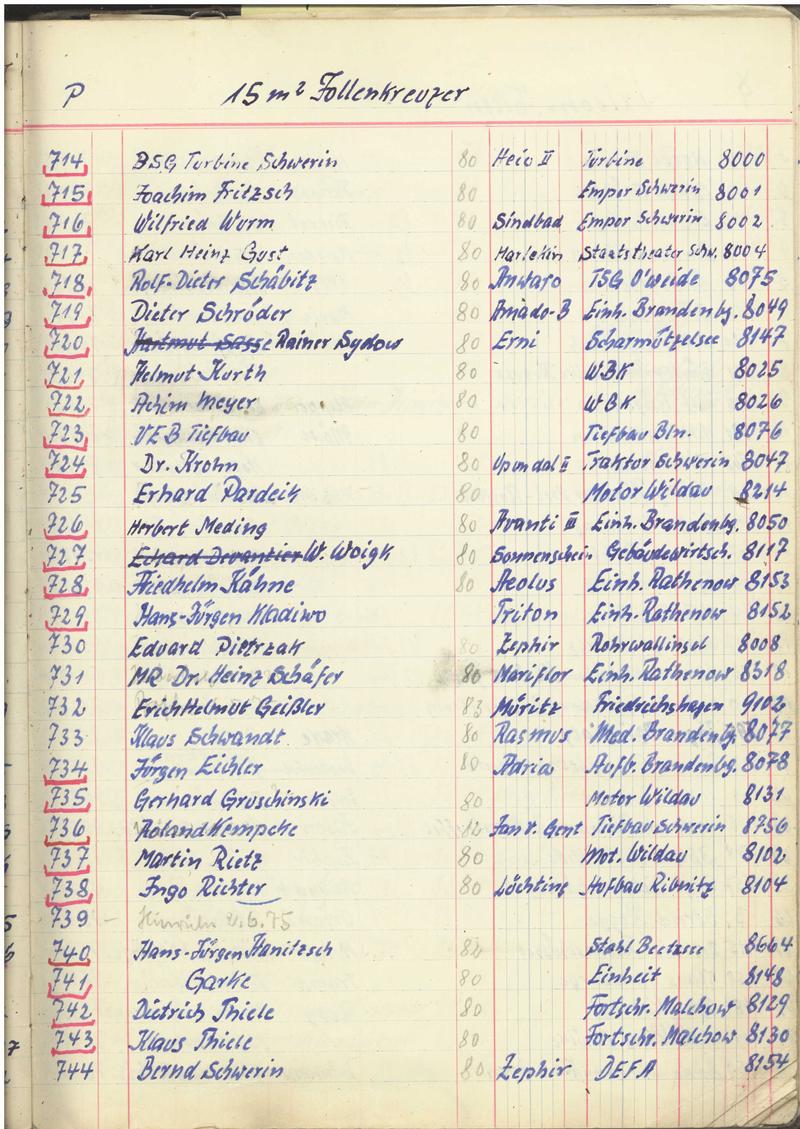 P 15 m² Jollenkreuzer
714 BSG Turbine Schwerin 80 Heio II Turbine 8000
715 Joachim Fritzsch 80 Empor Schwerin 8001
716 Wilfried Wurm 80 Sindbad Empor Schwerin 8002
717 Karl Heinz Gust 80 Harlekin Staatstheater Schw. 8004
718 Rolf-Dieter Schäbitz 80 Anwaro TSG O'weide 8075
719 Dieter Schröder 80 Amado-B Einh. Brandenbg. 8049
720 Hartmut Sasse Rainer Sydow 80 Erni Scharmützelsee 8147
721 Helmut Kurth 80 WBK 8025
722 Achim Meyer 80 WBK 8026
723 VEB Tiefbau 80 Tiefbau Bln. 8076
724 Dr. Krohn 80 Traktor Schwerin 8047
725 Erhard Pardeik 80 Motor Wildau 8214
726 Herbert Meding 80 Avanti III Einh. Brandenbg. 8050
727 Echard Devantier W. Woigk 80 Sonnenschein Gebäudewirtsch. 8117
728 Friedhelm Kähne 80 Aeolus Einh. Rathenow 8153
729 Hans-Jürgen Kladiwo Triton Einh. Rathenow 8152
730 Eduard Pietrzak 80 Zephir Rohrwallinsel 8008
731 MR Dr. Heinz Schäfer 80 Mariflor Einh. Rathenow 8318
732 Erich Helmut Geißler 83 Müritz Friedrichshagen 9102
733 Klaus Schwandt 80 Rasmus Med. Brandenbg. 8077
734 Jürgen Eichler 80 Adria Aufb. Brandenbg. 8078
735 Gerhard Gruschinski 80 Motor Wildau 8131
736 Roland Kempcke 82 Jan v. Gent Tiefbau Schwerin 8756
737 Martin Rietz 80 Mot. Wildau 8102
738 Ingo Richter 80 Löchting Aufbau Ribnitz 8104
739 – 2.6.75
740 Hans-Jürgen Hanitzsch 82 Stahl Beetzsee 8664
741 Garke 80 Einheit 8148
742 Dietrich Thiele 80 Fortschr. Malchow 8129
743 Klaus Thiele 80 Fortschr. Malchow 8130
744 Bernd Schwerin 80 Zephir DEFA 8154